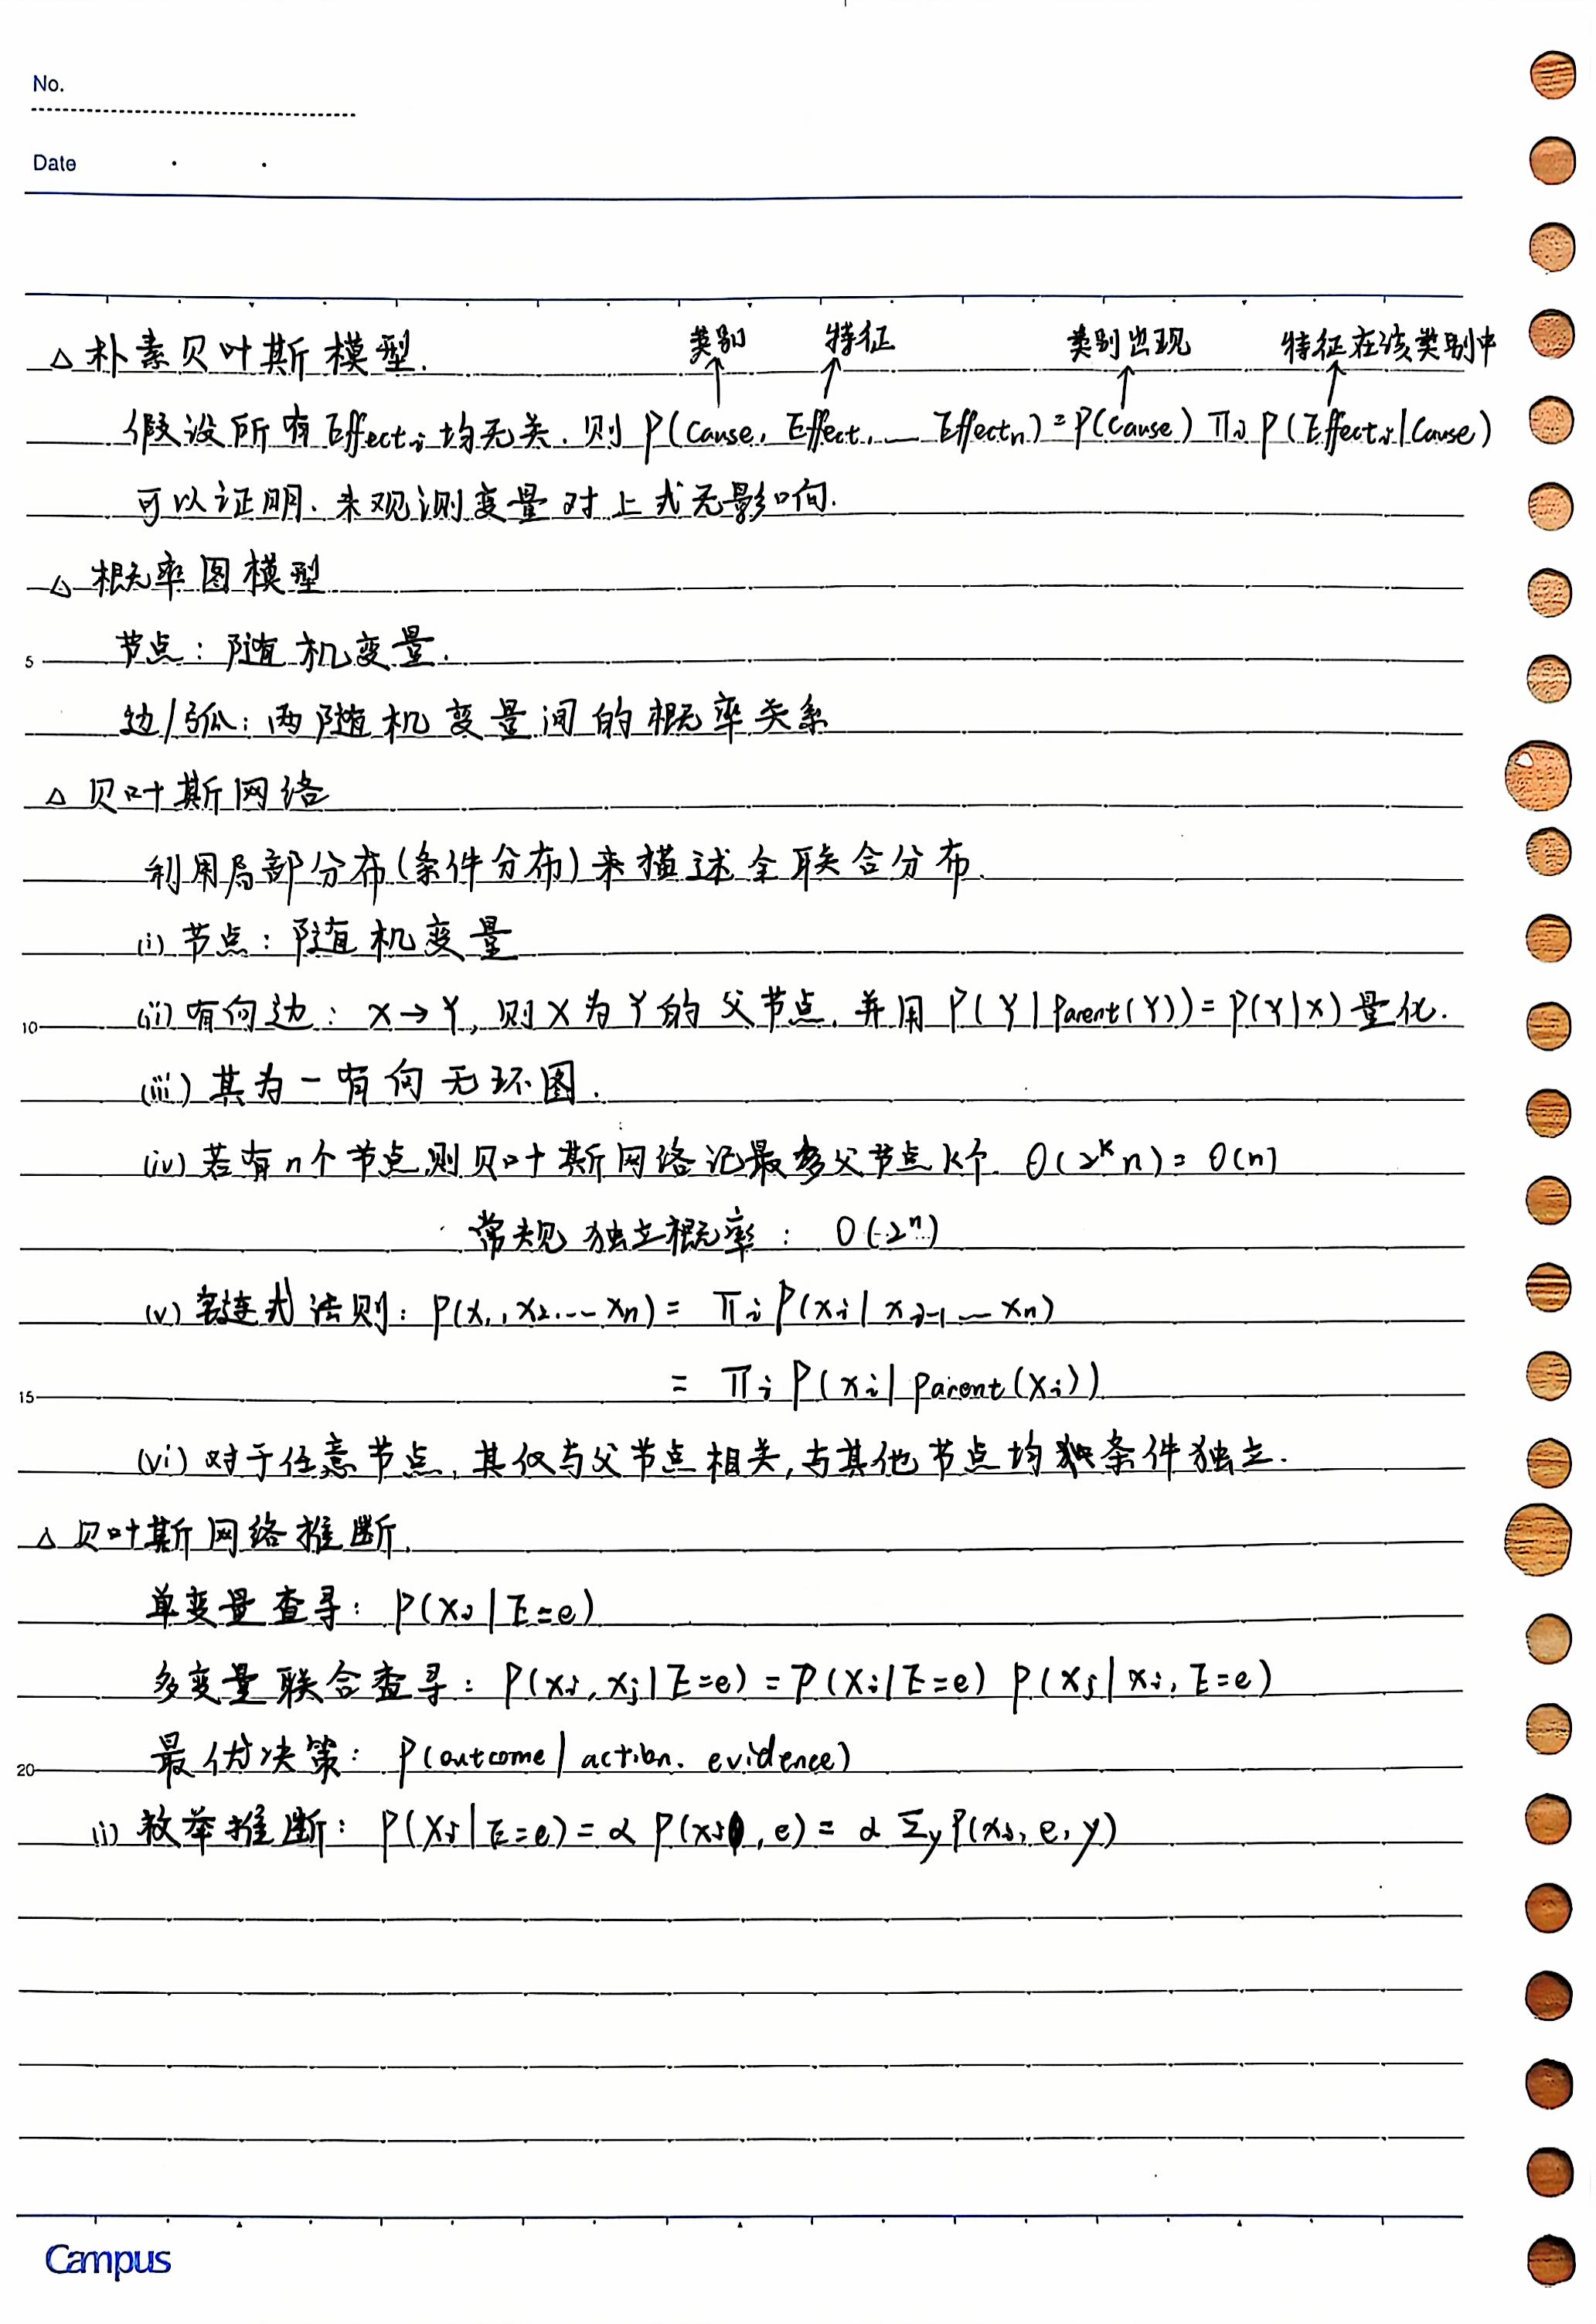 No.
Date
类别 特征 类别出现 特征在该类别中
△ 朴素贝叶斯模型.
假设所有Effectᵢ均无关. 则 P(Cause, Effect, … Effectₙ) = P(Cause) Πᵢ P(Effectᵢ|Cause)
可以证明. 未观测变量对上式无影响.
△ 概率图模型
5 节点: 随机变量.
边/弧: 两随机变量间的概率关系
△ 贝叶斯网络
利用局部分布(条件分布)来描述全联合分布.
(i) 节点: 随机变量
10 (ii) 有向边: X→Y, 则X为Y的父节点. 并用 P(Y|Parent(Y)) = P(Y|X) 量化.
(iii) 其为一有向无环图.
(iv) 若有n个节点则贝叶斯网络记最多父节点k个 O(2ᵏn) = O(n)
常规独立概率: O(2ⁿ)
(v) 链式法则: P(x₁, x₂…xₙ) = Πᵢ P(xᵢ|xᵢ₋₁…xₙ)
15 = Πᵢ P(xᵢ|parent(xᵢ))
(vi) 对于任意节点, 其仅与父节点相关, 与其他节点均条件独立.
△ 贝叶斯网络推断.
单变量查寻: P(Xᵢ|E=e)
多变量联合查寻: P(Xᵢ, Xⱼ|E=e) = P(Xᵢ|E=e) P(Xⱼ|Xᵢ, E=e)
20 最优决策: P(outcome|action. evidence)
(i) 枚举推断: P(Xᵢ|E=e) = α P(Xᵢ, e) = α Σy P(Xᵢ, e, y)
Campus